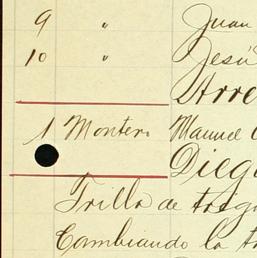 9 " Juan
10 " Jesú
Arre
1 Montero Manuel C
Dieg
Trilla de trigo
Cambiando la t